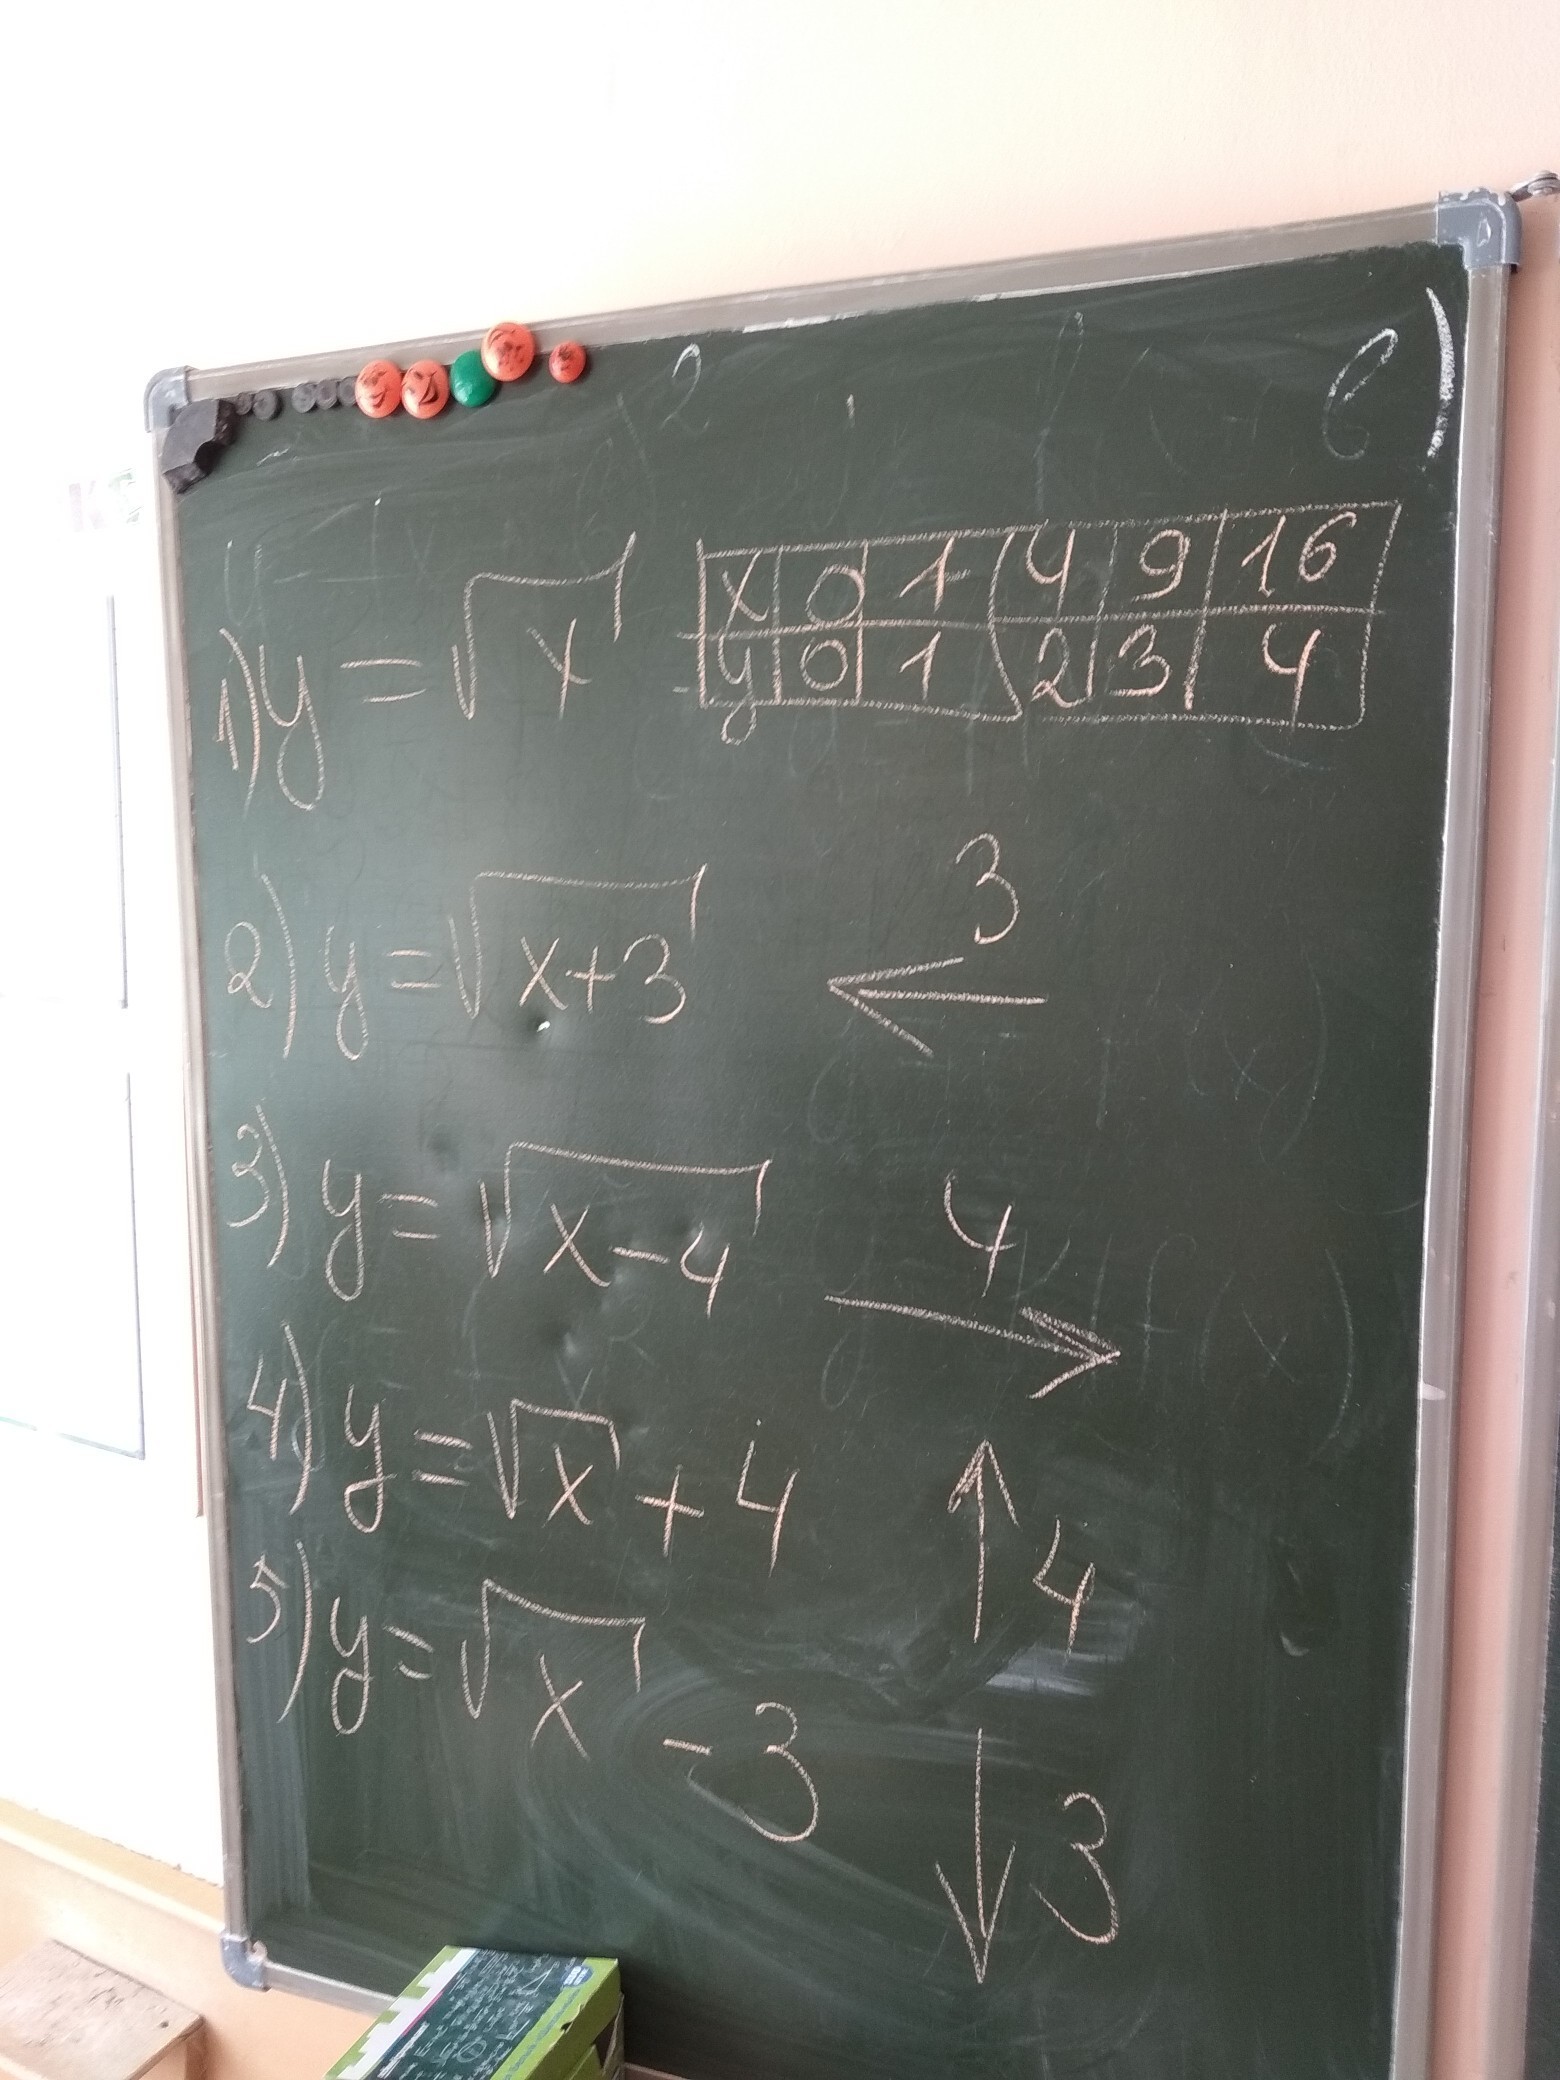 2 6
1) y = √x
x 0 1 4 9 16
y 0 1 2 3 4
2) y = √x+3 3 ←
3) y = √x−4 4 →
4) y = √x + 4 ↑ 4
5) y = √x − 3 ↓ 3